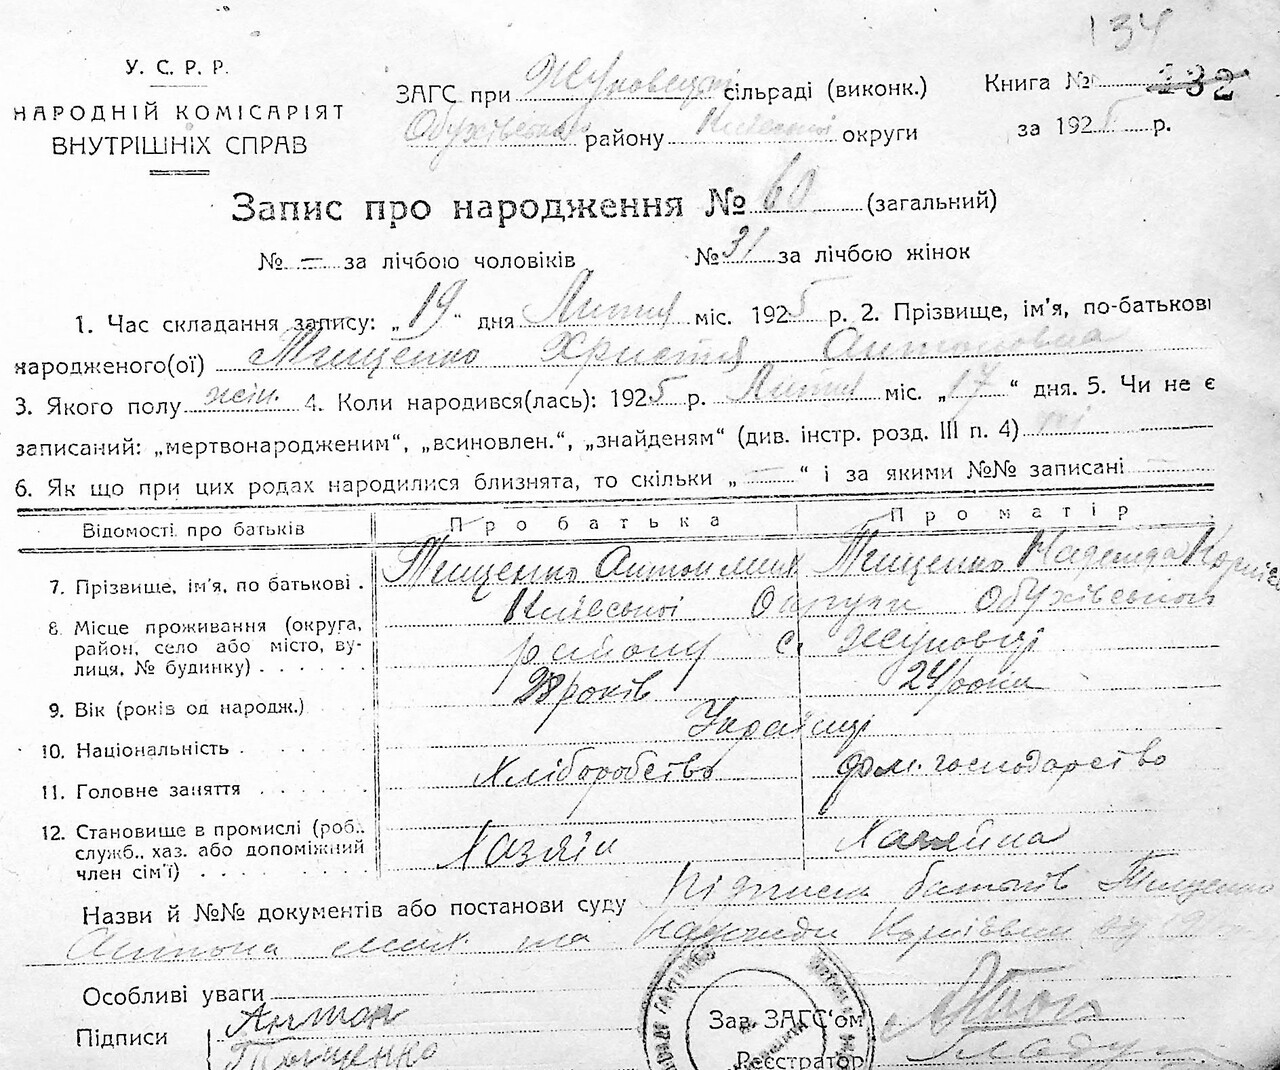 134
У. С. Р. Р.
НАРОДНІЙ КОМІСАРІЯТ
ВНУТРІШНІХ СПРАВ
ЗАГС при Жуковецкі сільраді (виконк.)
Обухівськ району Київської округи
Книга № 132
за 1925 р.
Запис про народження № 60 (загальний)
№ — за лічбою чоловіків № 31 за лічбою жінок
1. Час складання запису: „19“ дня Лютня міс. 1925 р. 2. Прізвище, ім'я, по-батькові
народженого(ої) Тищенко Христя Антоновна
3. Якого полу жін. 4. Коли народився(лась): 1925 р. Лютня міс. „17“ дня. 5. Чи не є
записаний: „мертвонародженим“, „всиновлен.“, „знайденям“ (див. інстр. розд. III п. 4) ні
6. Як що при цих родах народилися близнята, то скільки „—“ і за якими №№ записані —
Відомості про батьків Про батька Про матір
7. Прізвище, ім'я, по батькові . Тищенко Антон Мих Тищенко Надежда Корнієв
8. Місце проживання (округа, район, село або місто, вулиця, № будинку) . . . . . Київської Округи Обухівського
району с. Жуковці
9. Вік (років од народж.) 28 років 24 роки
10. Національність . . . . . . Українці
11. Головне заняття . . . . . Хліборобство дом. господарство
12. Становище в промислі (роб., служб., хаз. або допоміжний член сім'ї) . . . . . . . Хазяїн Хазяйка
Назви й №№ документів або постанови суду Підписи батьків Тищенко
Антона мих. та Надежди Корнієвни
Особливі уваги
Підписи Антон
Тищенко
Зав. ЗАГС'ом
Реєстратор